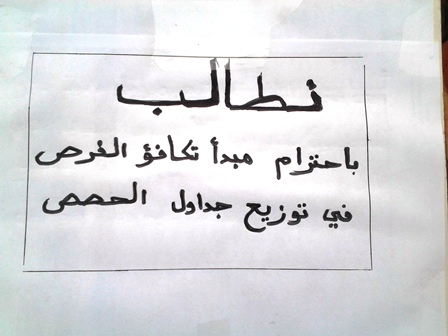 نطالب
باحترام مبدأ تكافؤ الفرص
في توزيع جداول الحصص